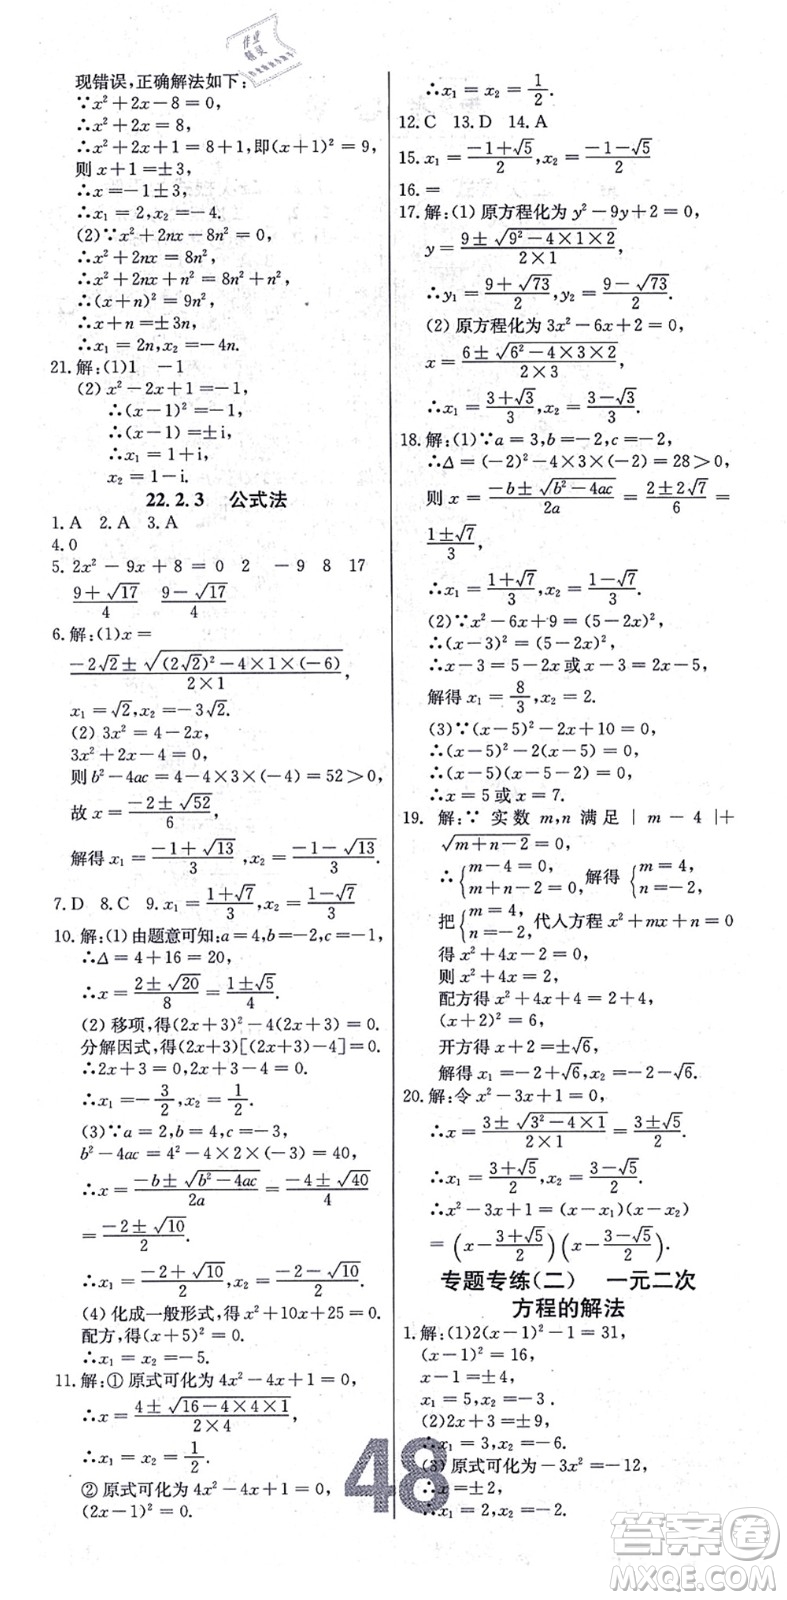 现错误,正确解法如下:
∵x²+2x-8=0,
∴x²+2x=8,
∴x²+2x+1=8+1,即(x+1)²=9,
则 x+1=±3,
∴x=-1±3,
∴x₁=2,x₂=-4.
(2)∵x²+2nx-8n²=0,
∴x²+2nx=8n²,
∴x²+2nx+n²=8n²+n²,
∴(x+n)²=9n²,
∴x+n=±3n,
∴x₁=2n,x₂=-4n.
21.解:(1)1 -1
(2) x²-2x+1=-1,
∴(x-1)²=-1,
∴(x-1)=±i,
∴x₁=1+i,
x₂=1-i.
22.2.3 公式法
1.A 2.A 3.A
4.0
5.2x²-9x+8=0 2 -9 8 17
(9+√17)/4 (9-√17)/4
6.解:(1)x=
(-2√2±√((2√2)²-4×1×(-6)))/(2×1),
x₁=√2,x₂=-3√2.
(2) 3x²=4-2x,
3x²+2x-4=0,
则 b²-4ac=4-4×3×(-4)=52>0,
故 x=(-2±√52)/6,
解得 x₁=(-1+√13)/3,x₂=(-1-√13)/3
7.D 8.C 9.x₁=(1+√7)/3,x₂=(1-√7)/3
10.解:(1) 由题意可知:a=4,b=-2,c=-1,
∴Δ=4+16=20,
∴x=(2±√20)/8=(1±√5)/4.
(2) 移项,得(2x+3)²-4(2x+3)=0.
分解因式,得(2x+3)[(2x+3)-4]=0.
∴2x+3=0,或 2x-1=0,
∴x₁=-3/2,x₂=1/2.
(3)∵a=2,b=4,c=-3,
b²-4ac=4²-4×2×(-3)=40,
∴x=(-b±√(b²-4ac))/2a=(-4±√40)/4
=(-2±√10)/2.
∴x₁=(-2+√10)/2,x₂=(-2-√10)/2.
(4) 化成一般形式,得 x²+10x+25=0,
配方,得(x+5)²=0,
∴x₁=x₂=-5.
11.解:① 原式可化为 4x²-4x+1=0,
∴x=(4±√(16-4×4×1))/(2×4),
∴x₁=x₂=1/2.
② 原式可化为 4x²-4x+1=0,
(2x-1)²=0,
∴x₁=x₂=1/2.
12.C 13.D 14.A
15.x₁=(-1+√5)/2,x₂=(-1-√5)/2
16.=
17.解:(1) 原方程化为 y²-9y+2=0,
y=(9±√(9²-4×1×2))/(2×1),
∴y₁=(9+√73)/2,y₂=(9-√73)/2.
(2) 原方程化为 3x²-6x+2=0,
x=(6±√(6²-4×3×2))/(2×3),
∴x₁=(3+√3)/3,x₂=(3-√3)/3.
18.解:(1)∵a=3,b=-2,c=-2,
∴Δ=(-2)²-4×3×(-2)=28>0,
则 x=(-b±√(b²-4ac))/2a=(2±2√7)/6=
(1±√7)/3,
∴x₁=(1+√7)/3,x₂=(1-√7)/3.
(2)∵x²-6x+9=(5-2x)²,
∴(x-3)²=(5-2x)²,
∴x-3=5-2x 或 x-3=2x-5,
解得 x₁=8/3,x₂=2.
(3)∵(x-5)²-2x+10=0,
∴(x-5)²-2(x-5)=0,
∴(x-5)(x-7)=0,
∴x=5 或 x=7.
19. 解:∵ 实数 m,n 满足 |m-4|+
√(m+n-2)=0,
∴{m-4=0, m+n-2=0,解得{m=4, n=-2,
把{m=4, n=-2,代人方程 x²+mx+n=0
得 x²+4x-2=0,
则 x²+4x=2,
配方得 x²+4x+4=2+4,
(x+2)²=6,
开方得 x+2=±√6,
解得 x₁=-2+√6,x₂=-2-√6.
20.解:令 x²-3x+1=0,
∴x=(3±√(3²-4×1))/(2×1)=(3±√5)/2.
∴x₁=(3+√5)/2,x₂=(3-√5)/2.
∴x²-3x+1=(x-x₁)(x-x₂)
=(x-(3+√5)/2)(x-(3-√5)/2).
专题专练(二) 一元二次
方程的解法
1.解:(1)2(x-1)²-1=31,
(x-1)²=16,
x-1=±4,
x₁=5,x₂=-3.
(2)2x=3,
∴x₁=3,x₂=-6.
(3) 原式可化为-3x²=-12,
∴x=±2,
∴x₁=2,x₂=-2.
48
答案圈
MXQE.COM